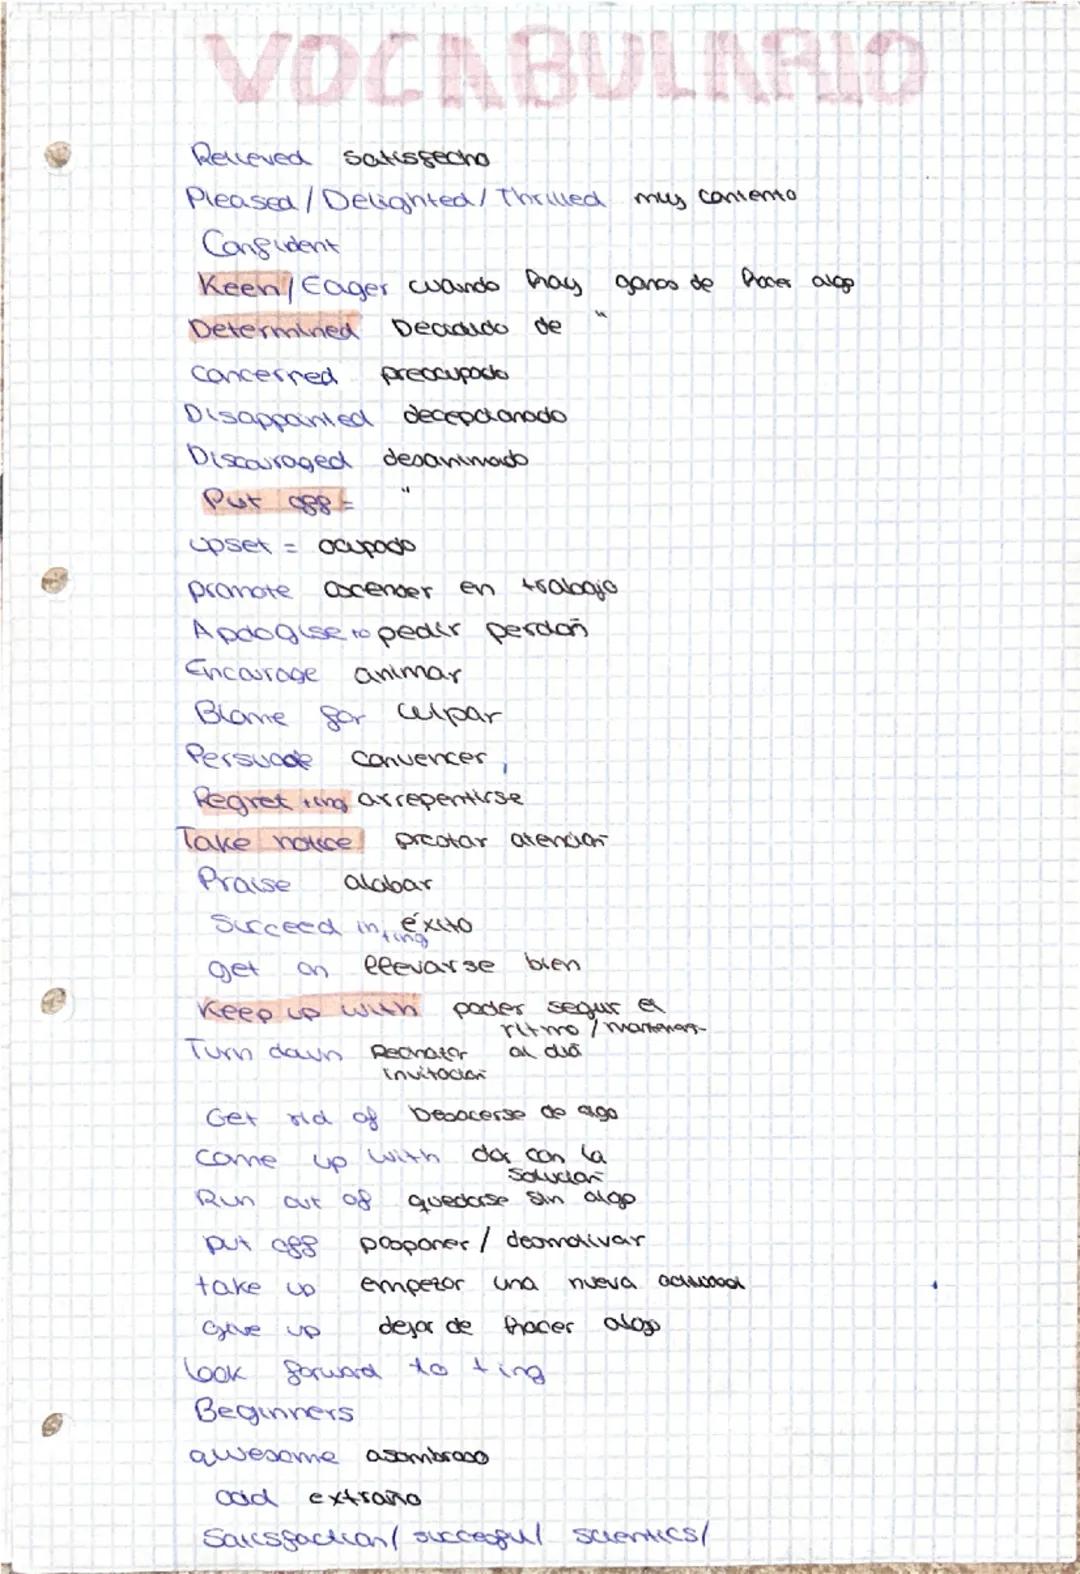 VOCABULARIO
Relieved satisfecho
Pleased / Delighted / Thrilled muy contento
Confident
Keen / Eager cuando hay ganas de hacer algo
Determined Decidido de "
Concerned preocupado
Disappointed decepcionado
Discouraged desanimado
Put off = "
upset = ocupado
promote ascender en trabajo
Apologise to pedir perdón
Encourage animar
Blame for culpar
Persuade convencer
Regret +ing arrepentirse
Take notice prestar atención
Praise alabar
Succeed in +ing éxito
get on llevarse bien
Keep up with poder seguir el
ritmo / mantenerse
Turn down Rechazar al día
invitación
Get rid of Desacerse de algo
Come up with dar con la
solución
Run out of quedarse sin algo
put off posponer / desmotivar
take up empezar una nueva actividad
give up dejar de hacer algo
look forward to + ing
Beginners
awesome asombroso
odd extraño
Satisfaction / succesful scientics /